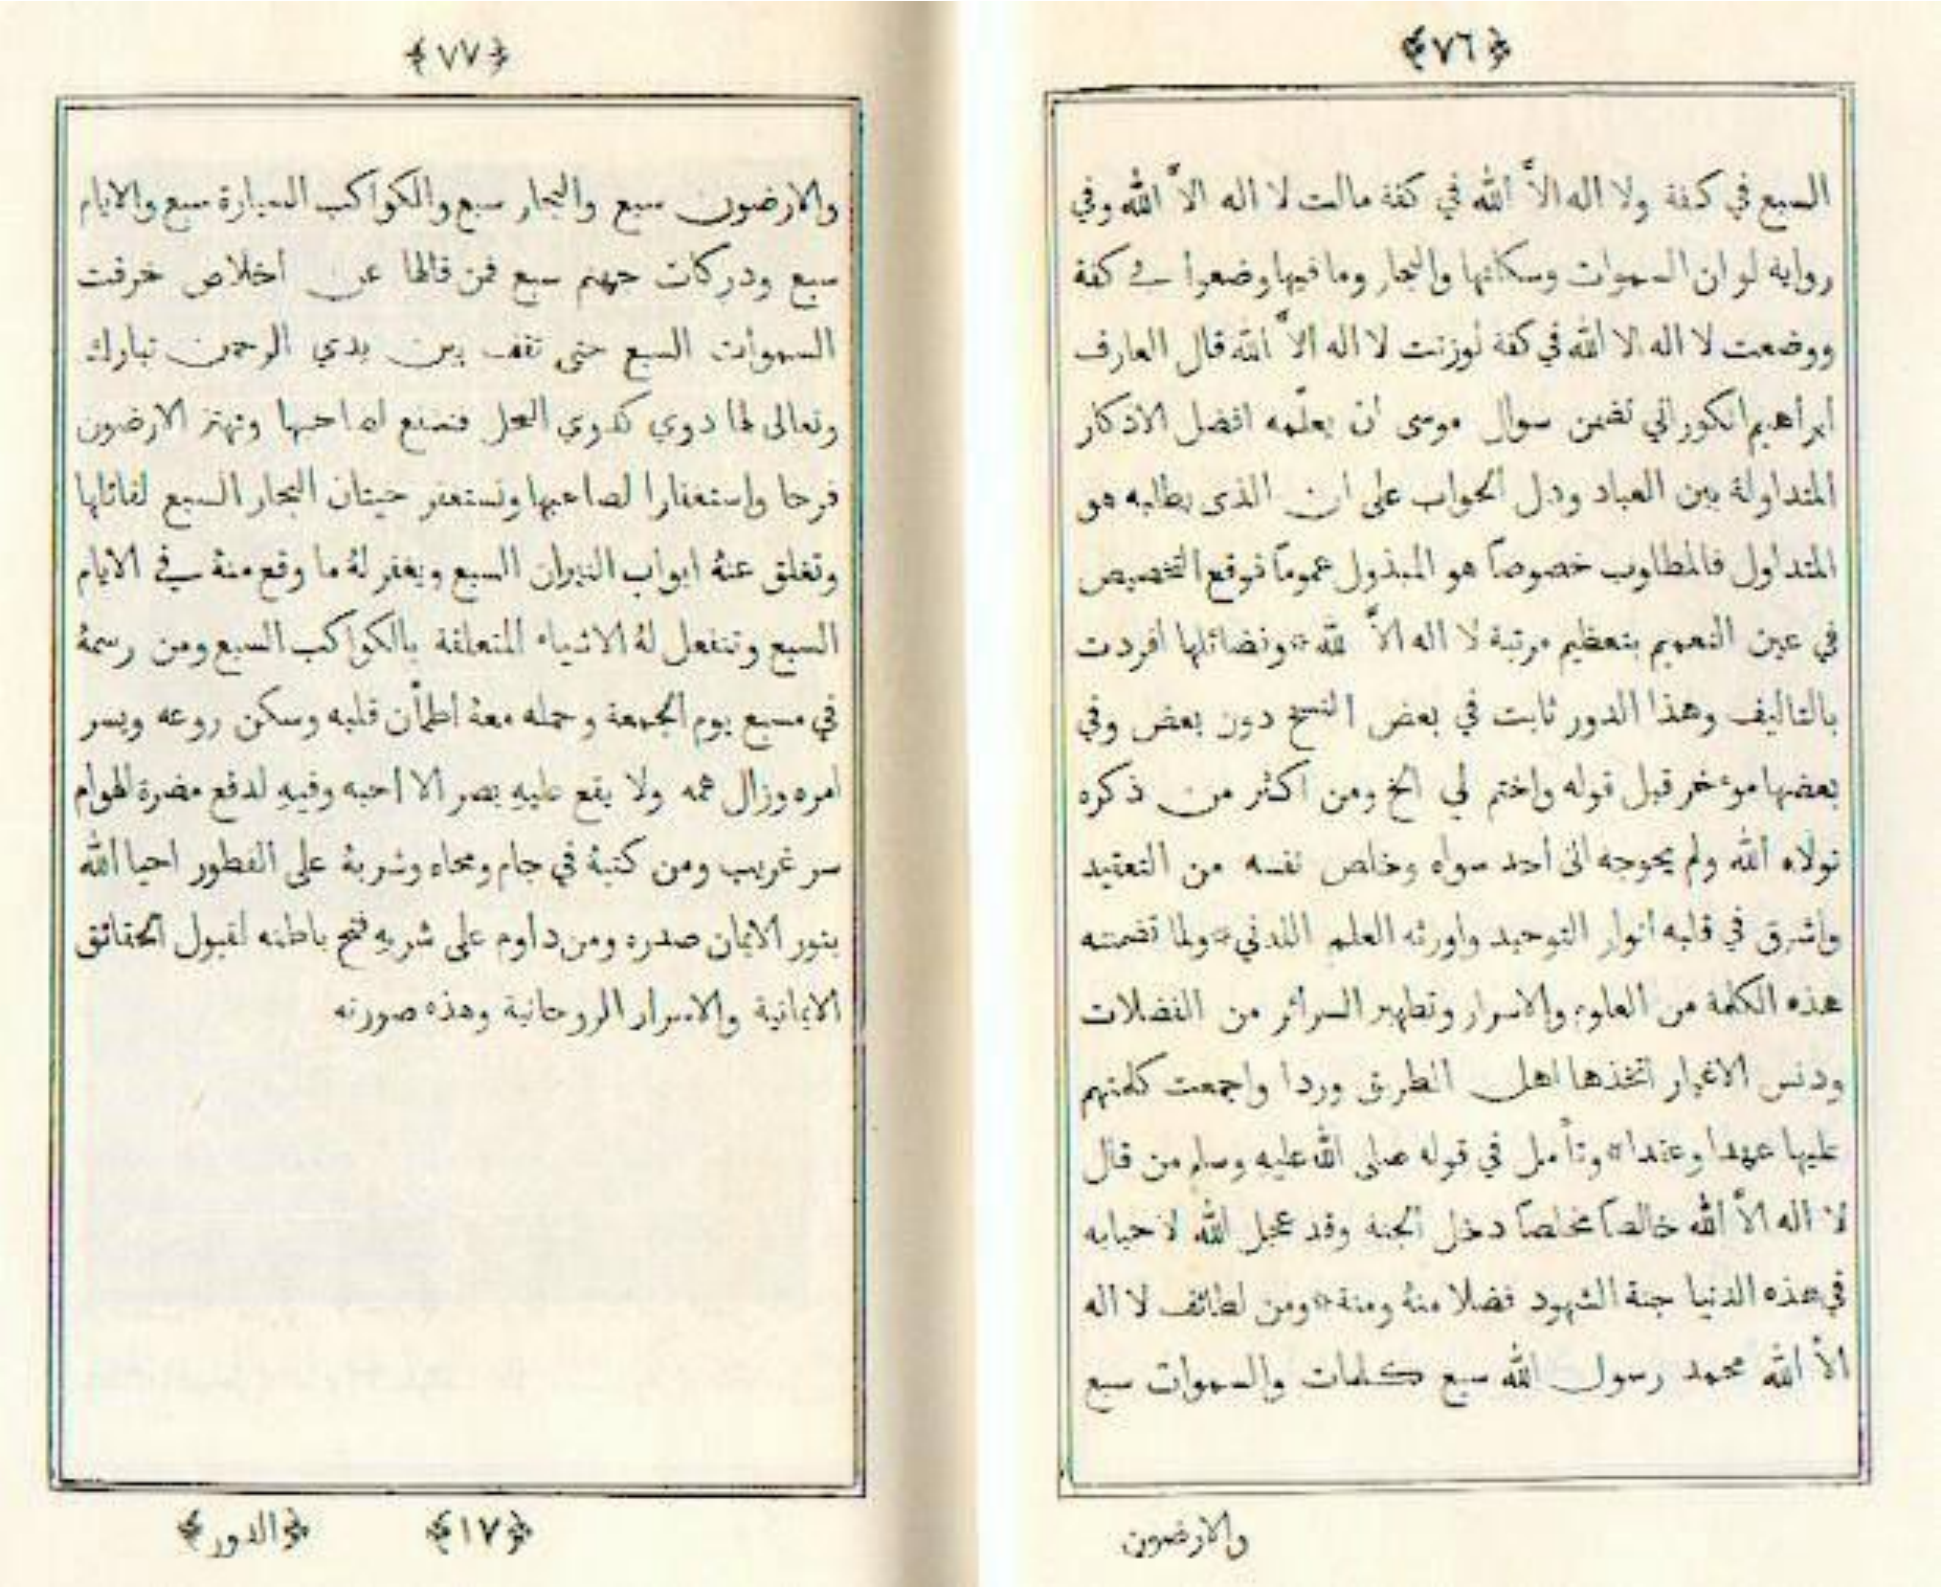 ﴿٧٦﴾
السبع في كفة ولا اله الاَّ الله في كفة مالت لا اله الاَّ الله وفي
رواية لو ان السموات وسكانها والبحار وما فيها وضعوا في كفة
ووضعت لا اله الا الله في كفة لوزنت لا اله الاَّ الله قال العارف
ابراهيم الكوراني تضمن سوال موسى ان يعلّمه افضل الاذكار
المتداولة بين العباد ودل الجواب على ان الذى يطلبه هو
المتداول فالمطلوب خصوصاً هو المبذول عموماً فوقع التخصيص
في عين التعميم بتعظيم مرتبة لا اله الاَّ الله * وفضائلها افردت
بالتاليف وهذا الدور ثابت في بعض النسخ دون بعض وفي
بعضها موءخر قبل قوله واختم لي الخ ومن اكثر من ذكره
تولاه الله ولم يحوجه الى أحد سواه وخلص نفسه من التعقيد
واشرق في قلبه انوار التوحيد واورثه العلم اللدني * ولما تضمنته
هذه الكلمة من العلوم والاسرار وتطهير السرائر من الفضلات
ودنس الاغيار اتخذها اهل الطريق وردا واجمعت كلمتهم
عليها عهدا وعقدا * وتأمل في قوله صلى الله عليه وسلم من قال
لا اله الاَّ الله خالصاً مخلصاً دخل الجنة وقد عجل الله لاحبابه
في هذه الدنيا جنة الشهود فضلا منهُ ومنة * ومن لطائف لا اله
الأ الله محمد رسول الله سبع كلمات والسموات سبع
والارضون
﴿٧٧﴾
والارضون سبع والبحار سبع والكواكب السيارة سبع والايام
سبع ودركات جهنم سبع فمن قالها عن اخلاص خرقت
السموات السبع حتى تقف بين يدي الرحمن تبارك
وتعالى لها دوي كدوي النحل فتشفع لصاحبها وتهتز الارضون
فرحا واستغفارا لصاحبها وتستغفر حيتان البحار السبع لقائلها
وتغلق عنهُ ابواب النيران السبع ويغفر لهُ ما وقع منهُ في الايام
السبع وتنفعل لهُ الاشياء المتعلقة بالكواكب السبع ومن رسمهُ
في مسبع يوم الجمعة وحمله معهُ اطمأن قلبه وسكن روعه ويسر
امره وزال همه ولا يقع عليهِ بصر الا احبه وفيهِ لدفع مضرة الهوام
سر غريب ومن كتبهُ في جام ومحاه وشربهُ على الفطور احيا الله
بنور الايمان صدره ومن داوم على شربهِ فتح باطنه لقبول الحقائق
الايمانية والاسرار الروحانية وهذه صورته
﴿١٧﴾ ﴿الدور﴾